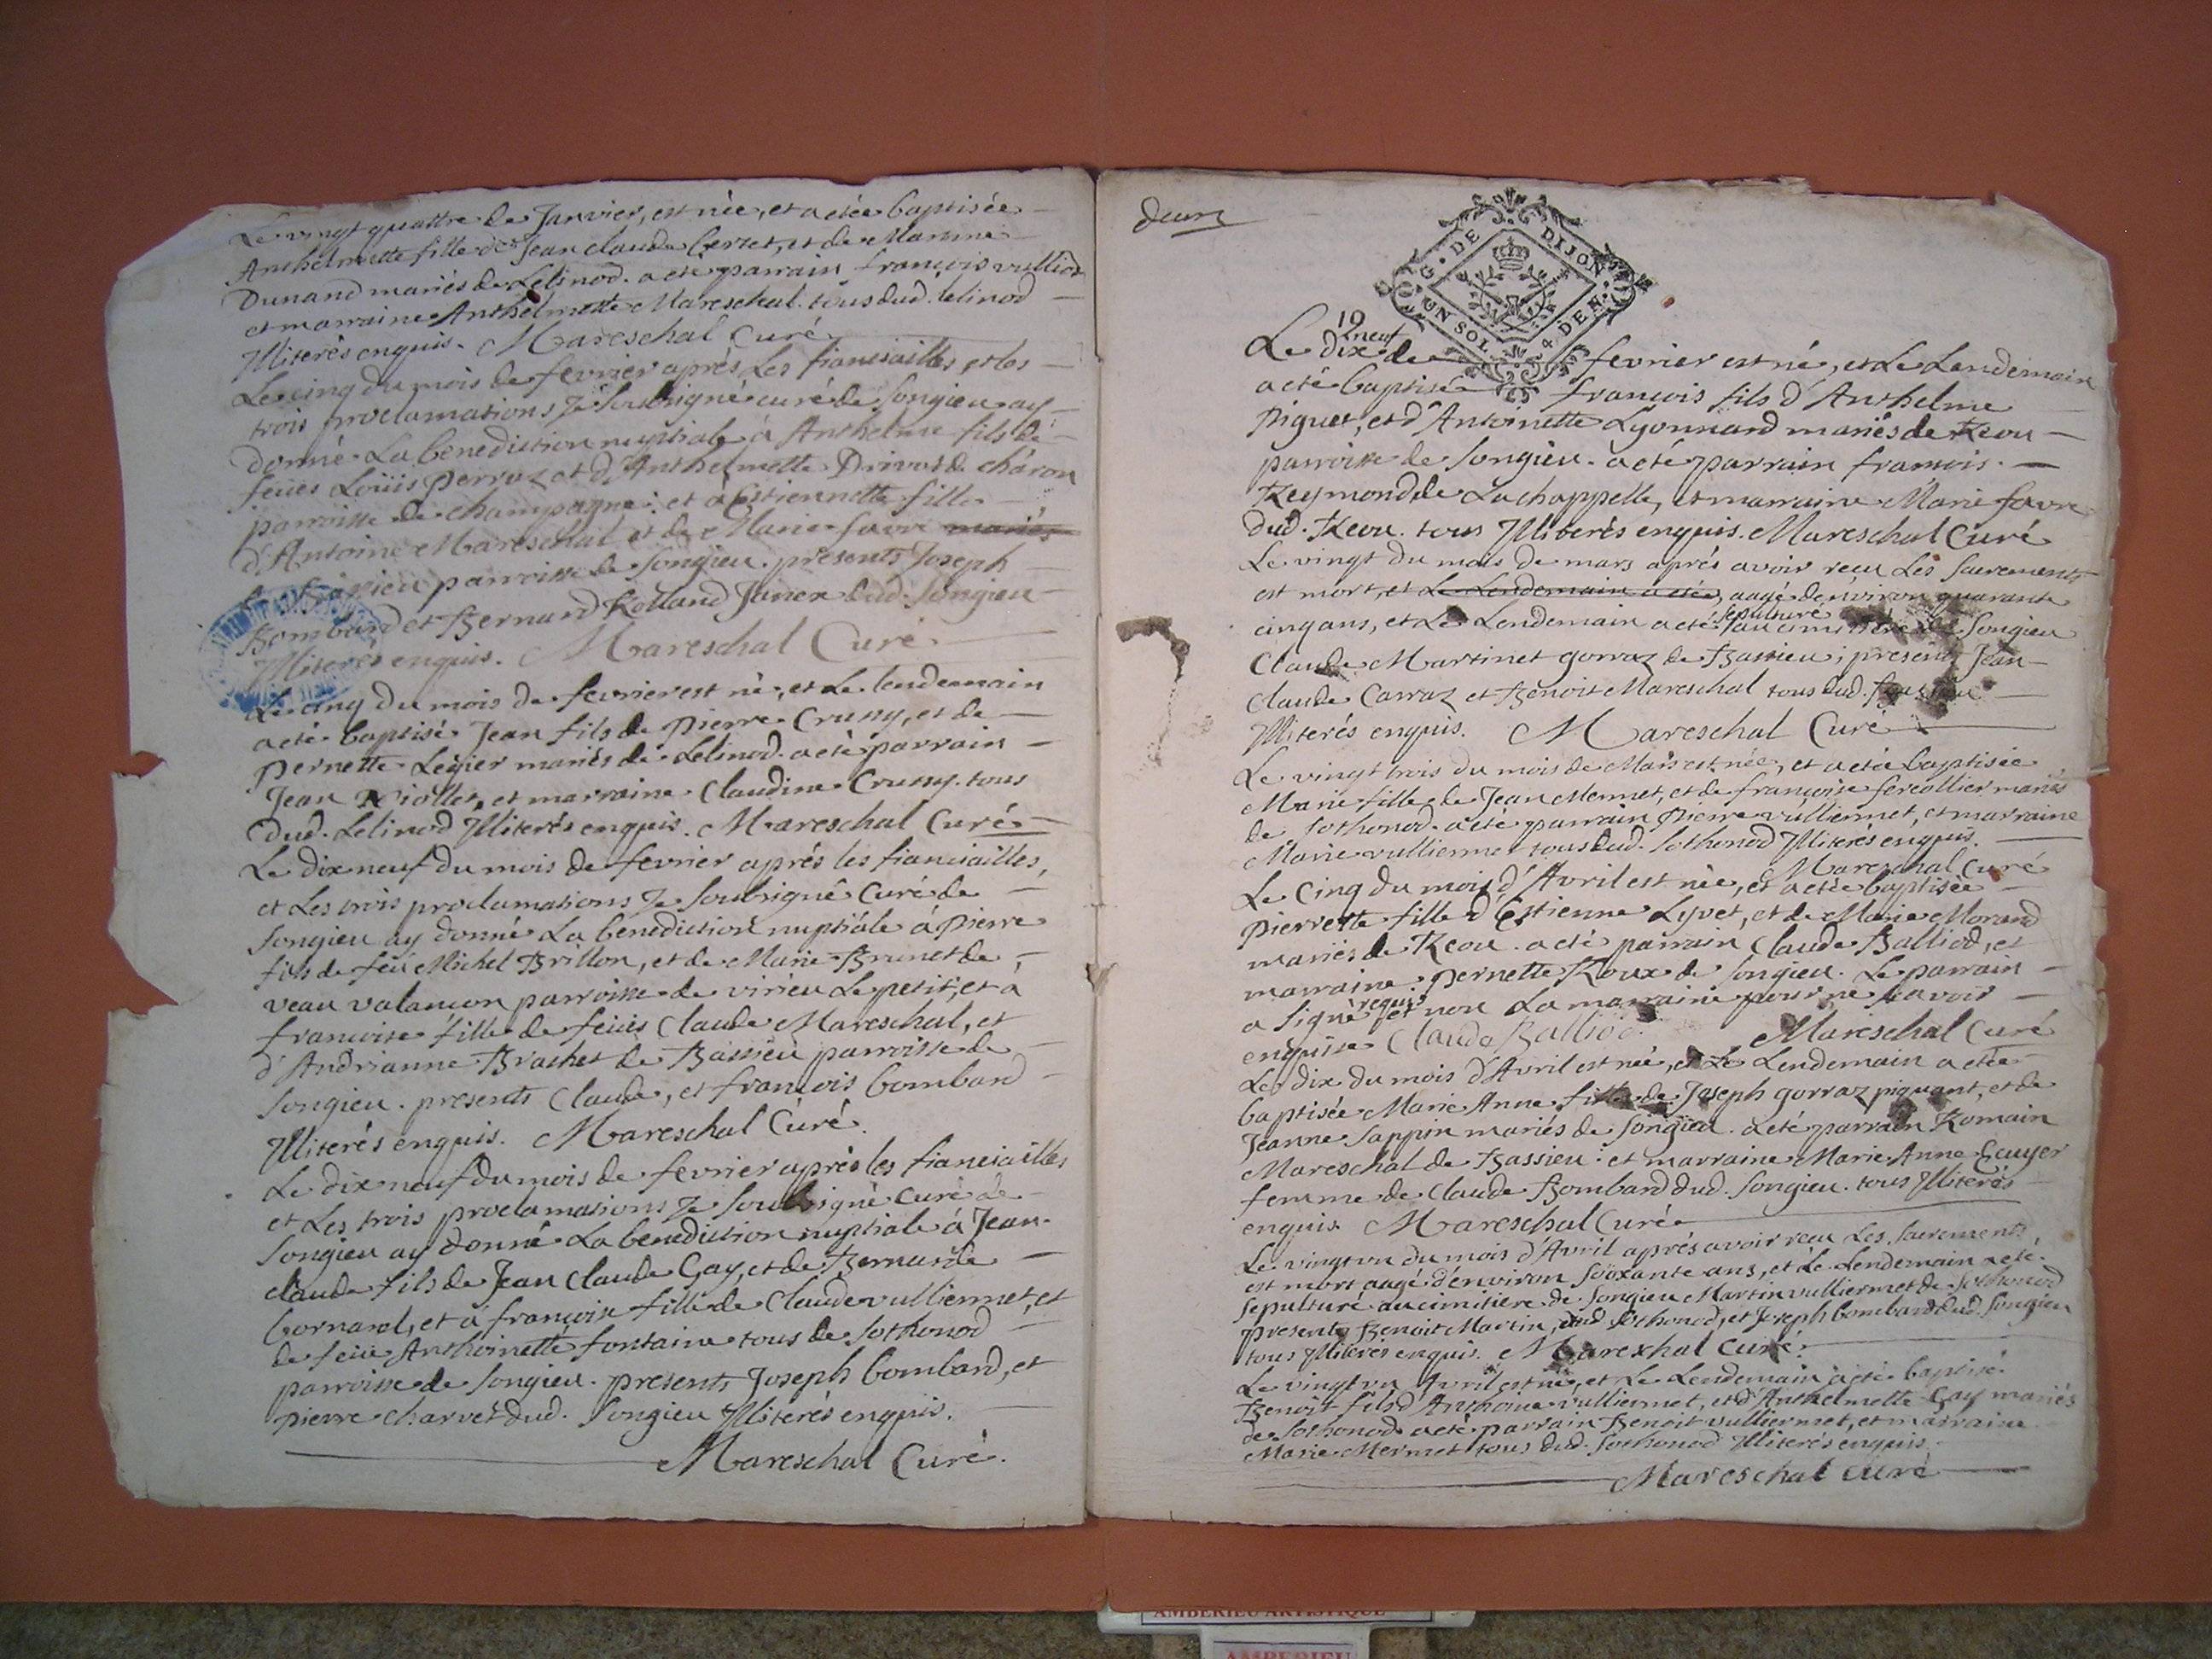 Le vingt quattre de Janvier, est née, et a etée baptisée
Anthelmette fille de Jean claude Berzet, et de Martine
Dunand mariés de Lelinod. a eté parrain françois vulliod
et marraine Anthelmette Mareschal. tous dud. lelinod
Illiterés enquis. Mareschal Curé
Le cinq du mois de fevrier aprés Les fianciailles, et les
trois proclamations Je Soubsigné curé de Songieu ay
donné La benediction nuptiale à Anthelme fils de
feües Loüis Perraz et d'Anthelmette Privot de charon
parroisse de champagne: et à Estiennette fille
d'Antoine Mareschal et de Marie favre mariés
de Bassieu parroisse de Songieu. presents Joseph
Bombard et Bernard Rolland Janex dud. Songieu
Illiterés enquis. Mareschal Curé
Le cinq du mois de fevrier est né, et Le lendemain
a eté baptisé Jean fils de Pierre Crussy, et de
Pernette Legier mariés de Lelinod. a eté parrain
Jean Violler, et marraine Claudine Crussy. tous
Dud. Lelinod Illiterés enquis. Mareschal Curé
Le dix neuf du mois de fevrier aprés les fianciailles,
et Les trois proclamations Je Soubsigné Curé de
Songieu ay donné La benediction nuptiale à Pierre
fils de feu Michel Brillon, et de Marie Brunet de
veau valançon parroisse de virieu Le petit, et à
françoise fille de feües Claude Mareschal, et
d'Andrianne Brachet de Bassieu parroisse de
Songieu. presents Claude, et françois bombard
Illiterés enquis. Mareschal Curé.
Le dix neuf du mois de fevrier aprés les fianciailles
et Les trois proclamations Je Soubsigné Curé de
Songieu ay donné La benediction nuptiale à Jean
claude fils de Jean Claude Gay, et de Bernarde
bornarel, et à françoise fille de Claude vulliermet, et
de feüe Anthoinette fontaine tous de Sothonod
parroisse de Songieu. presents Joseph bombard, et
pierre charvet dud. Songieu Illiterés enquis.
Mareschal Curé.
deux
G. DE DIJON
UN SOL 4 DEN.
19
Le dix neuf de fevrier est né, et Le Lendemain
a eté baptisé françois fils d'Anthelme
Piguet, et d'Antoinette Lyonnard mariés de Reou
parroisse de Songieu. a eté parrain françois
Reymond de La chappelle, et marraine Marie favre
dud. Reou. tous Illiterés enquis. Mareschal Curé
Le vingt du mois de mars aprés avoir reçu Les Sacrements
est mort, et Le Lendemain a etée, aagé d'environ quarante
cinq ans, et Le Lendemain a eté sepulturé au cimitiere de Songieu
Claude Martinet gorraz de Bassieu; presents Jean
claude Carraz et Benoit Mareschal tous dud. Bassieu
Illiterés enquis. Mareschal Curé
Le vingt trois du mois de Mars est née, et a etée baptisée
Marie fille de Jean Mermet, et de françoise fereollier mariés
de Sothonod. a eté parrain Pierre vulliermet, et marraine
Marie vulliermet tous dud. Sothonod Illiterés enquis.
Mareschal Curé
Le Cinq du mois d'Avril est née, et a etée baptisée
Pierrette fille d'Estienne Lyvet, et de Marie Morand
mariés de Reou. a eté parrain Claude Balliod, et
marraine Pernette Roux de Songieu. Le parrain
a Signé requis et non La marraine pour ne sçavoir
enquise Claude Balliod. Mareschal Curé
Le dix du mois d'Avril est née, et Le Lendemain a etée
baptisée Marie Anne fille de Joseph gorraz piquant, et de
Jeanne Sappin mariés de Songieu. a eté parrain Romain
Mareschal de Bassieu: et marraine Marie Anne Ecuyer
femme de Claude Bombard dud. Songieu. tous Illiterés
enquis. Mareschal Curé
Le vingt un du mois d'Avril aprés avoir reçu Les Sacrements,
est mort aagé d'environ Soixante ans, et Le Lendemain a eté
Sepulturé au cimitiere de Songieu Martin vulliermet de Sothonod
presents Benoit Martin, dud. Sothonod, et Joseph bombard dud. Songieu
tous Illiterés enquis. Mareschal Curé.
Le vingt un Avril est né, et Le Lendemain a eté baptisé
Benoit fils d'Anthoine vulliermet, et d'Anthelmette Gay mariés
de Sothonod a eté parrain Benoit vulliermet, et marraine
Marie Mermet tous dud. Sothonod Illiterés enquis.
Mareschal Curé
AMBERIEU ARTISTIQUE
AMBERIEU